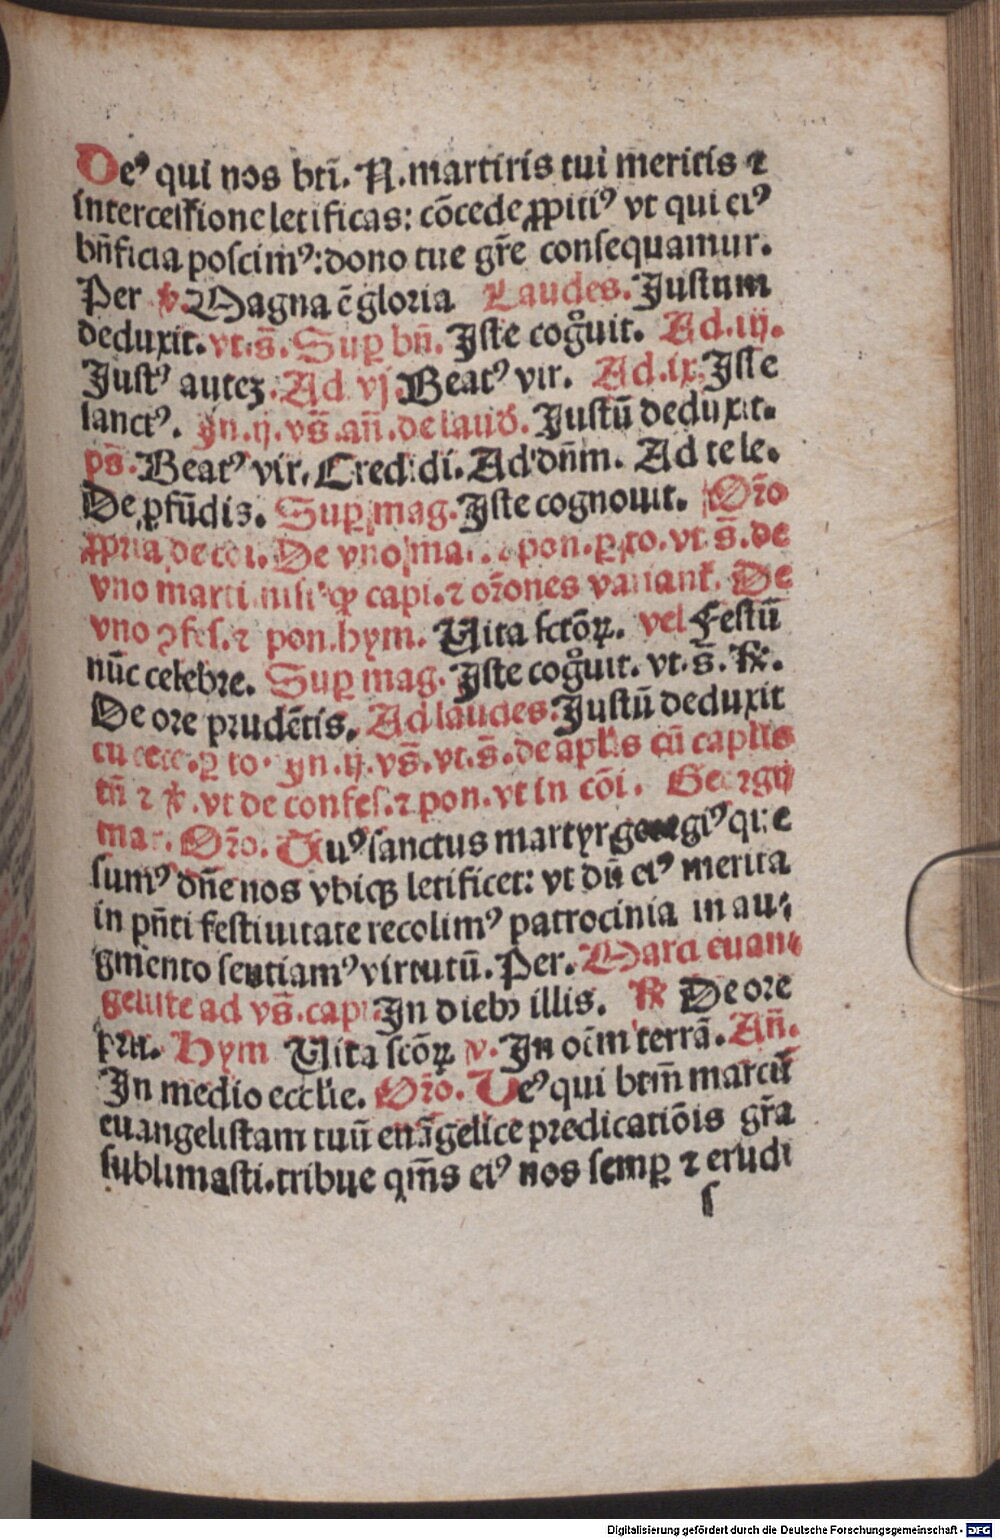 Deꝰ qui nos bti̅. N. martiris tui meritis ⁊
intercessione letificas: co̅cede ꝓpitiꝰ vt qui eiꝰ
bn̅ficia poscimꝰ: dono tue gr̅e consequamur.
Per ℣. Magna e̅ gloria Laudes. Justum
deduxit. vt. s̅. Suꝑ bn̅. Iste cog̅uit. Ad. iij.
Justꝰ autez. Ad vj Beatꝰ vir. Ad. ix. Iste
sanctꝰ. Jn. ij. vs̅. an̅. de laud. Justu̅ deduxit.
ps̅. Beatꝰ vir. Credidi. Ad dn̅m. Ad te le.
De ꝓfu̅dis. Suꝑ mag. Iste cognouit. Or̅o
ꝓpria de coi. De vno pon. ꝑ to. vt. s̅. de
vno capi. ⁊ or̅ones variant. De
vno ꝯfes. ⁊ pon. hym. Vita scto̅ꝝ. vel Festu̅
nu̅c celebre. Suꝑ mag. Iste cog̅uit. vt. s̅. ℟.
De ore prude̅tis. Ad laudes. Justu̅ deduxit
ꝑ to. Jn. ij. vs̅. vt. s̅. de apl̅is cu̅ capl̅is
tn̅ ⁊ ℣. vt de confes. ⁊ pon. vt in co̅i. Georgij
mar. Or̅o. Tuꝰ sanctus martyr georgiꝰ que
sumꝰ dn̅e nos vbiqꝫ letificet: vt du̅ eiꝰ merita
in pn̅ti festiuitate recolimꝰ patrocinia in au⸗
gmento sentiamꝰ virtutu̅. Per. Marci euan⸗
geliste ad vs̅. capi. In diebꝰ illis. ℟ De ore
pru. Hym Vita sco̅ꝝ v. In oi̅m terra̅. An̅.
In medio eccl̅ie. Or̅o. Deꝰ qui btm̅ marcu̅
euangelistam tuu̅ eua̅gelice predicatio̅is gr̅a
sublimasti. tribue qm̅s eiꝰ nos semꝑ ⁊ erudi
s
Digitalisierung gefördert durch die Deutsche Forschungsgemeinschaft - DFG